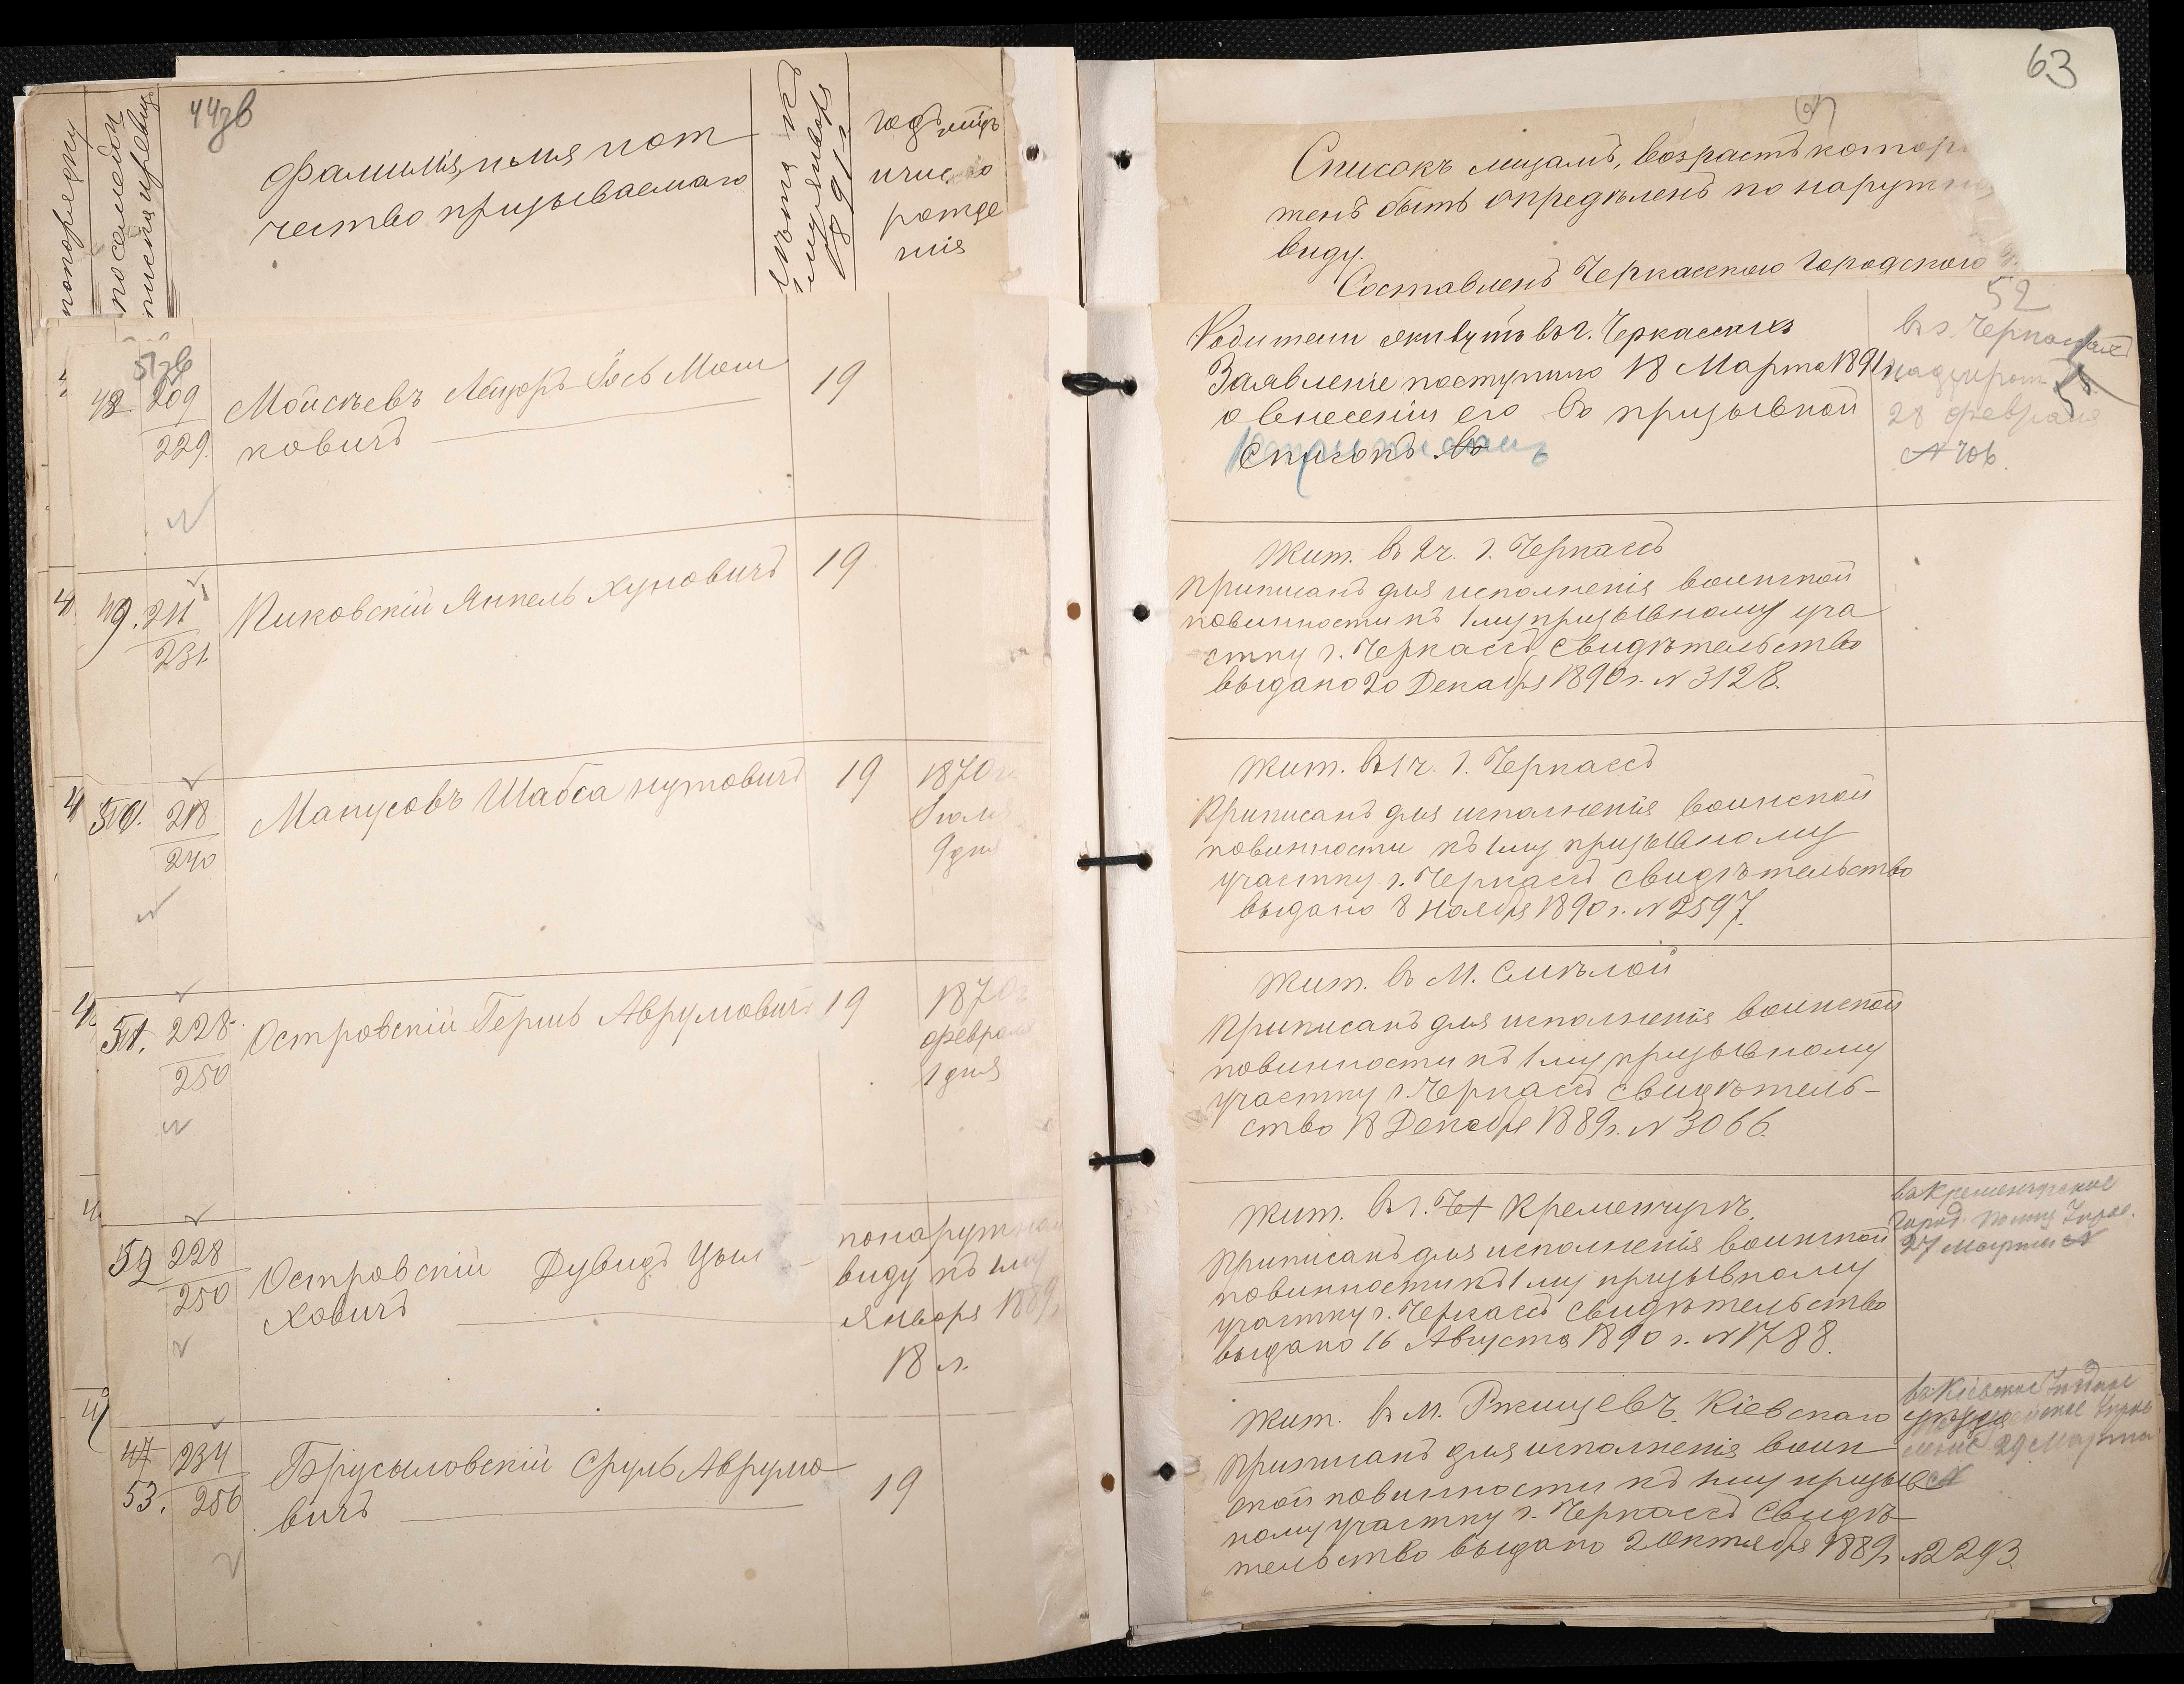 44зв
по порядку
по семейн
писка и ревиз
Фамилія, имя и от
чество призываемаго
Лѣта къ
1 му января
1891 г
годъ мѣць
и число
рожде
нія
51зв
48. 209
229.
Моисѣевъ Лейзоръ Іось Мош
ковичъ
19
49. 211
231
Киковскій Янкель Хуновичъ
19
50. 218
240
Манусовъ Шабса Нутовичъ
19
1870 г
Іюля
9 дня
51. 228
250
Островскій Гершъ Аврумовичъ
19
1870
февраля
1 дня
52 228
250
Островскій Дувидъ Цыл
ховичъ
по наружном
виду къ 1 му
января 1889
18 л.
47 234
53. 256
Брусыловскій Сруль Аврумо
вичъ
19
63
Списокъ лицамъ, возрастъ котор
женъ быть опредѣленъ по наружн
виду.
Составленъ Черкасскою Городскою
52
Родители живутъ въ г. Черкассахъ
Заявленіе поступило 18 Марта 1891
о внесеніи его въ призывной
списокъ. въ
въ г. Черкассахъ
28 февраля
№ 406.
Жит. въ 2 ч. г. Черкассъ
Приписанъ для исполненія воинской
повинности къ 1 му призывному уча
стку г. Черкассъ свидѣтельство
выдано 20 Декабря 1890 г. № 3128.
Жит. въ 1 ч. г. Черкассъ
Приписанъ для исполненія воинской
повинности къ 1 му призывному
участку г. Черкассъ свидѣтельство
выдано 8 Ноября 1890 г. № 2597.
Жит. въ М. Смѣлой
Приписанъ для исполненія воинской
повинности къ 1 му призывному
участку г. Черкассъ свидѣтель-
ство 18 Декабря 1889 г. № 3066.
Жит. въ г. Че Кременчугѣ.
Приписанъ для исполненія воинской
повинности къ 1 му призывному
участку г. Черкассъ свидѣтельство
выдано 16 Августа 1890 г. № 1788.
въ Кременчугское
Город. по
27 Марта №
Жит. въ М. Ржищевѣ, Кіевскаго уѣзда
Приписанъ для исполненія воин
ской повинности къ 1 му призыв
ному участку г. Черкассъ Свидѣ
тельство выдано 2 Октября 1889 г № 2293.
въ Кіевское Уѣздное
29 Марта
№